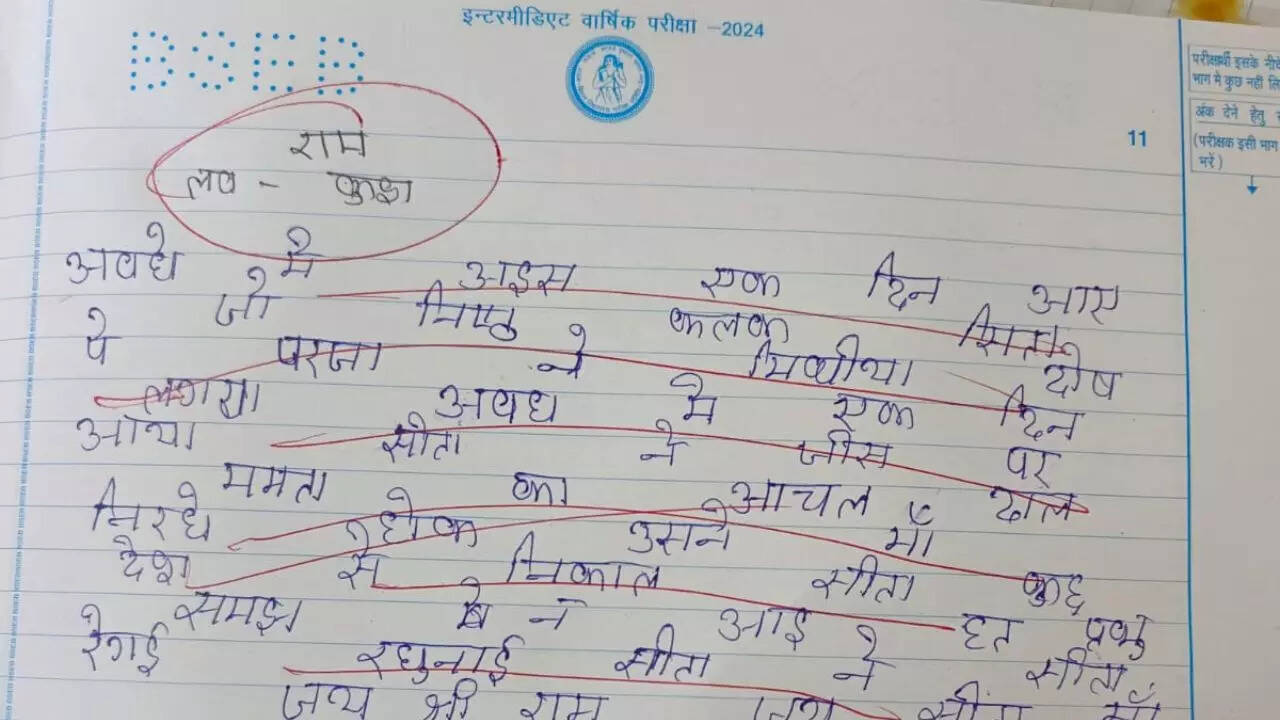 इन्टरमीडिएट वार्षिक परीक्षा –2024
BSEB
परीक्षार्थी इसके नीचे
भाग मे कुछ नहीं लि
अंक देने हेतु
(परीक्षक इसी भाग
भरें)
11
राम
लव - कुश
अवधे मे आइस एक दिन आए
जो मिष्ठ कलक सिता
पे परजा ने मिथीया दोष
लगाया अवध मे एक दिन
आया सीता ने जीस पर
ममता का आचल ढाल
निरधे होक उसने माँ
देश से निकाल सीता कुछ
समझ ने आइ हत प्रभु
रेगई रघुनाई सीता ने सीता
जय श्री राम जय सीता माँ